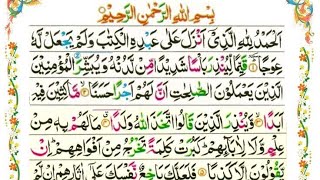 بِسْمِ اللّٰهِ الرَّحْمٰنِ الرَّحِيْمِ
اَلْحَمْدُ لِلّٰهِ الَّذِيْٓ اَنْزَلَ عَلٰى عَبْدِهِ الْكِتٰبَ وَلَمْ يَجْعَلْ لَّهٗ
عِوَجًا ۝ قَيِّمًا لِّيُنْذِرَ بَاْسًا شَدِيْدًا مِّنْ لَّدُنْهُ وَيُبَشِّرَ الْمُؤْمِنِيْنَ
الَّذِيْنَ يَعْمَلُوْنَ الصّٰلِحٰتِ اَنَّ لَهُمْ اَجْرًا حَسَنًا ۝ مَّاكِثِيْنَ فِيْهِ
اَبَدًا ۝ وَّيُنْذِرَ الَّذِيْنَ قَالُوا اتَّخَذَ اللّٰهُ وَلَدًا ۝ مَا لَهُمْ بِهٖ مِنْ
عِلْمٍ وَّلَا لِاٰبَآئِهِمْ كَبُرَتْ كَلِمَةً تَخْرُجُ مِنْ اَفْوَاهِهِمْ اِنْ
يَّقُوْلُوْنَ اِلَّا كَذِبًا ۝ فَلَعَلَّكَ بَاخِعٌ نَّفْسَكَ عَلٰٓى اٰثَارِهِمْ اِنْ لَّمْ